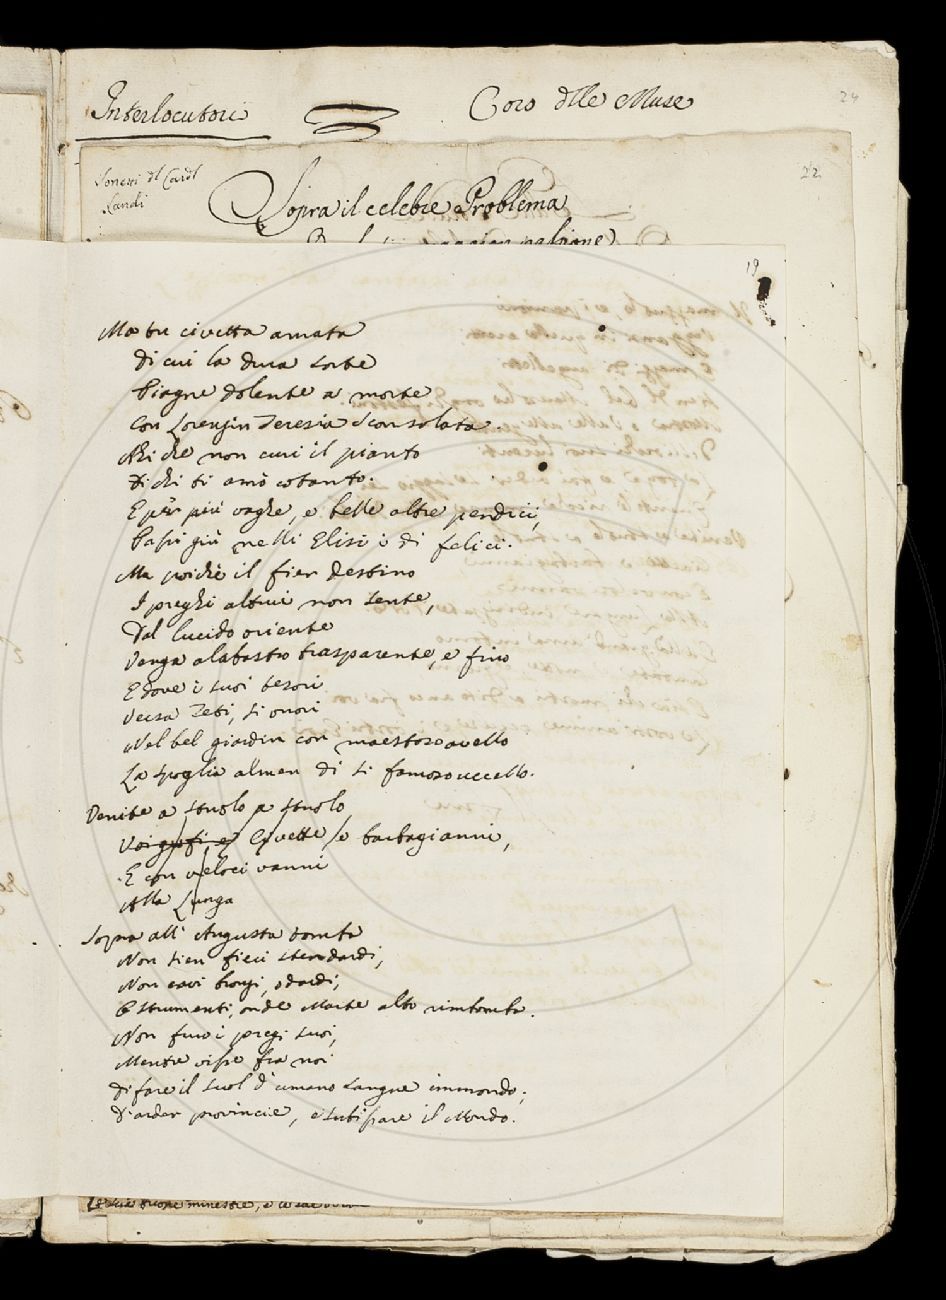 Interlocutori
Coro dlle Muse
24
Sonetti dl Cardl
Landi
22
Sopra il celebre Problema
19
Ma tu civetta amata
Di cui la dura sorte
Piagne dolente a morte
Con Lorenzin Teresia sconsolata.
Ahi che non curi il pianto
Di chi ti amò cotanto.
E pur più vaghe, e belle altre perdici,
Passi giù nelli Elisi i dì felici.
Ma poichè il fier destino
I preghi altrui non sente,
Dal lucido oriente
Venga alabastro trasparente, e fino
E dove i suoi tesori
Versa Teti, si onori
Nel bel giardin con maestoso avello
La spoglia almen di sì famoso uccello.
Venite a stuolo a stuolo
Voi gufi, e Civette e barbagianni,
E con veloci vanni
Alla Lunga
Sopra all' Augusta tomba
Non sien fieri stendardi,
Non cavi bronzi, o dardi,
E strumenti, onde Marte alto rimbomba.
Non furo i pregi suoi,
Mentre visse fra noi
Di fare il suol d' umano sangue immondo;
D' arder provincie, e subissare il Mondo.